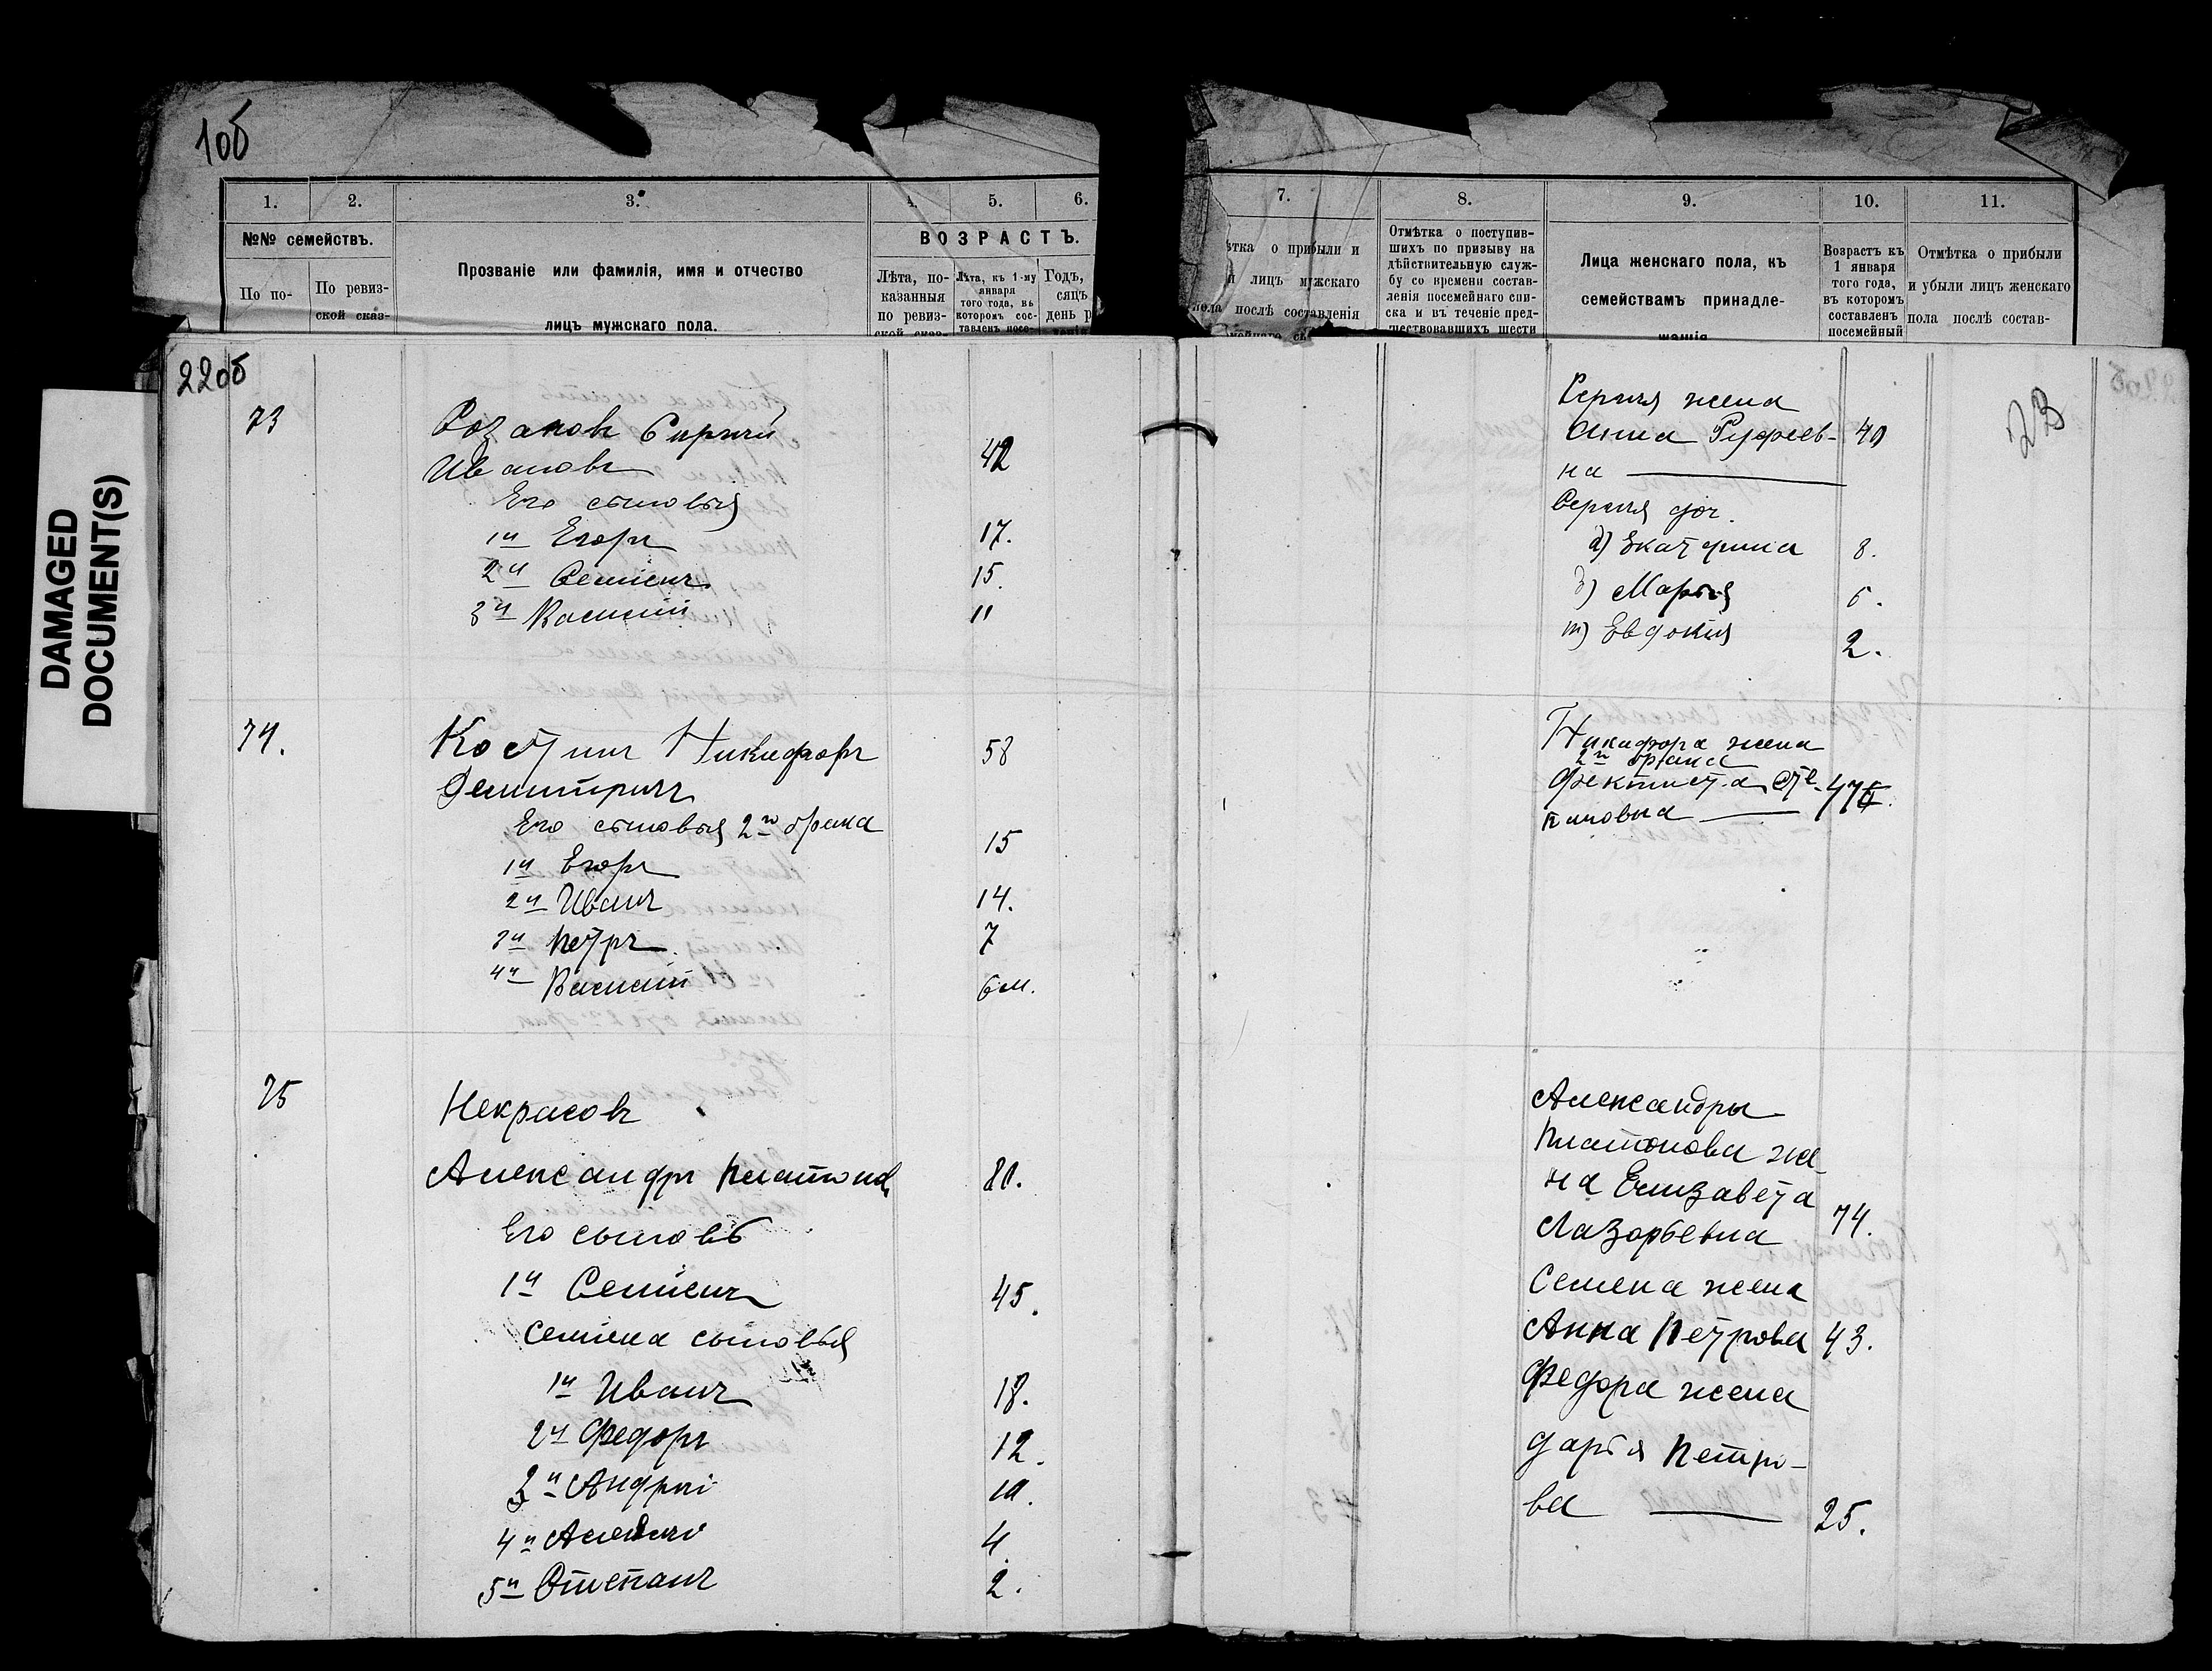 10б
1. 2. 3. 4. 5. 6.
№№ семействъ.
По по-
По ревиз-
ской сказ-
Прозваніе или фамилія, имя и отчество
лицъ мужскаго пола.
ВОЗРАСТЪ.
Лѣта, по-
казанныя
по ревиз-
ской сказ-
Лѣта, къ 1-му
января
того года, въ
которомъ сос-
тавленъ посе-
Годъ,
сяцъ
день р
7. 8. 9. 10. 11.
ѣтка о прибыли и
и лицъ мужскаго
пола послѣ составленія
Отмѣтка о поступив-
шихъ по призыву на
дѣйствительную служ-
бу со времени состав-
ленія посемейнаго спи-
ска и въ теченіе пред-
шествовавшихъ шести
Лица женскаго пола, къ
семействамъ принадле-
жащія
Возрастъ къ
1 января
того года,
въ которомъ
составленъ
посемейный
Отмѣтка о прибыли
и убыли лицъ женскаго
пола послѣ состав-
DAMAGED
DOCUMENT(S)
22об
73
Розановъ Сергѣй
Ивановъ 42
Его сыновья
1й Егоръ 17.
2й Семенъ 15.
3й Василій 11
74.
Костинъ Никифоръ 58
Дмитричъ
Его сыновья 2го брака
1й Егоръ 15
2й Иванъ 14.
3й Петръ 7
4й Василій 6 м.
75
Некрасовъ
Александръ Платонов 80.
Его сыновъ
1й Семенъ 45.
Семена сыновья
1й Иванъ 18.
2й Федоръ 12.
Андрей 10.
4й 4.
5й Степанъ 2.
23
Сергѣя жена
Анна Руфеев- 40
на
Сергѣя доч.
а) Екатерина 8.
б) Марья
в) Евдокія 2.
Никифора жена
2го брака
Фектиста Сте- 47
пановна
Александры
Платонова же
на Елизавета
Лазорьевна 74.
Семена жена
Анна Петрова 43.
Федора жена
Дарья Петро-
ва 25.